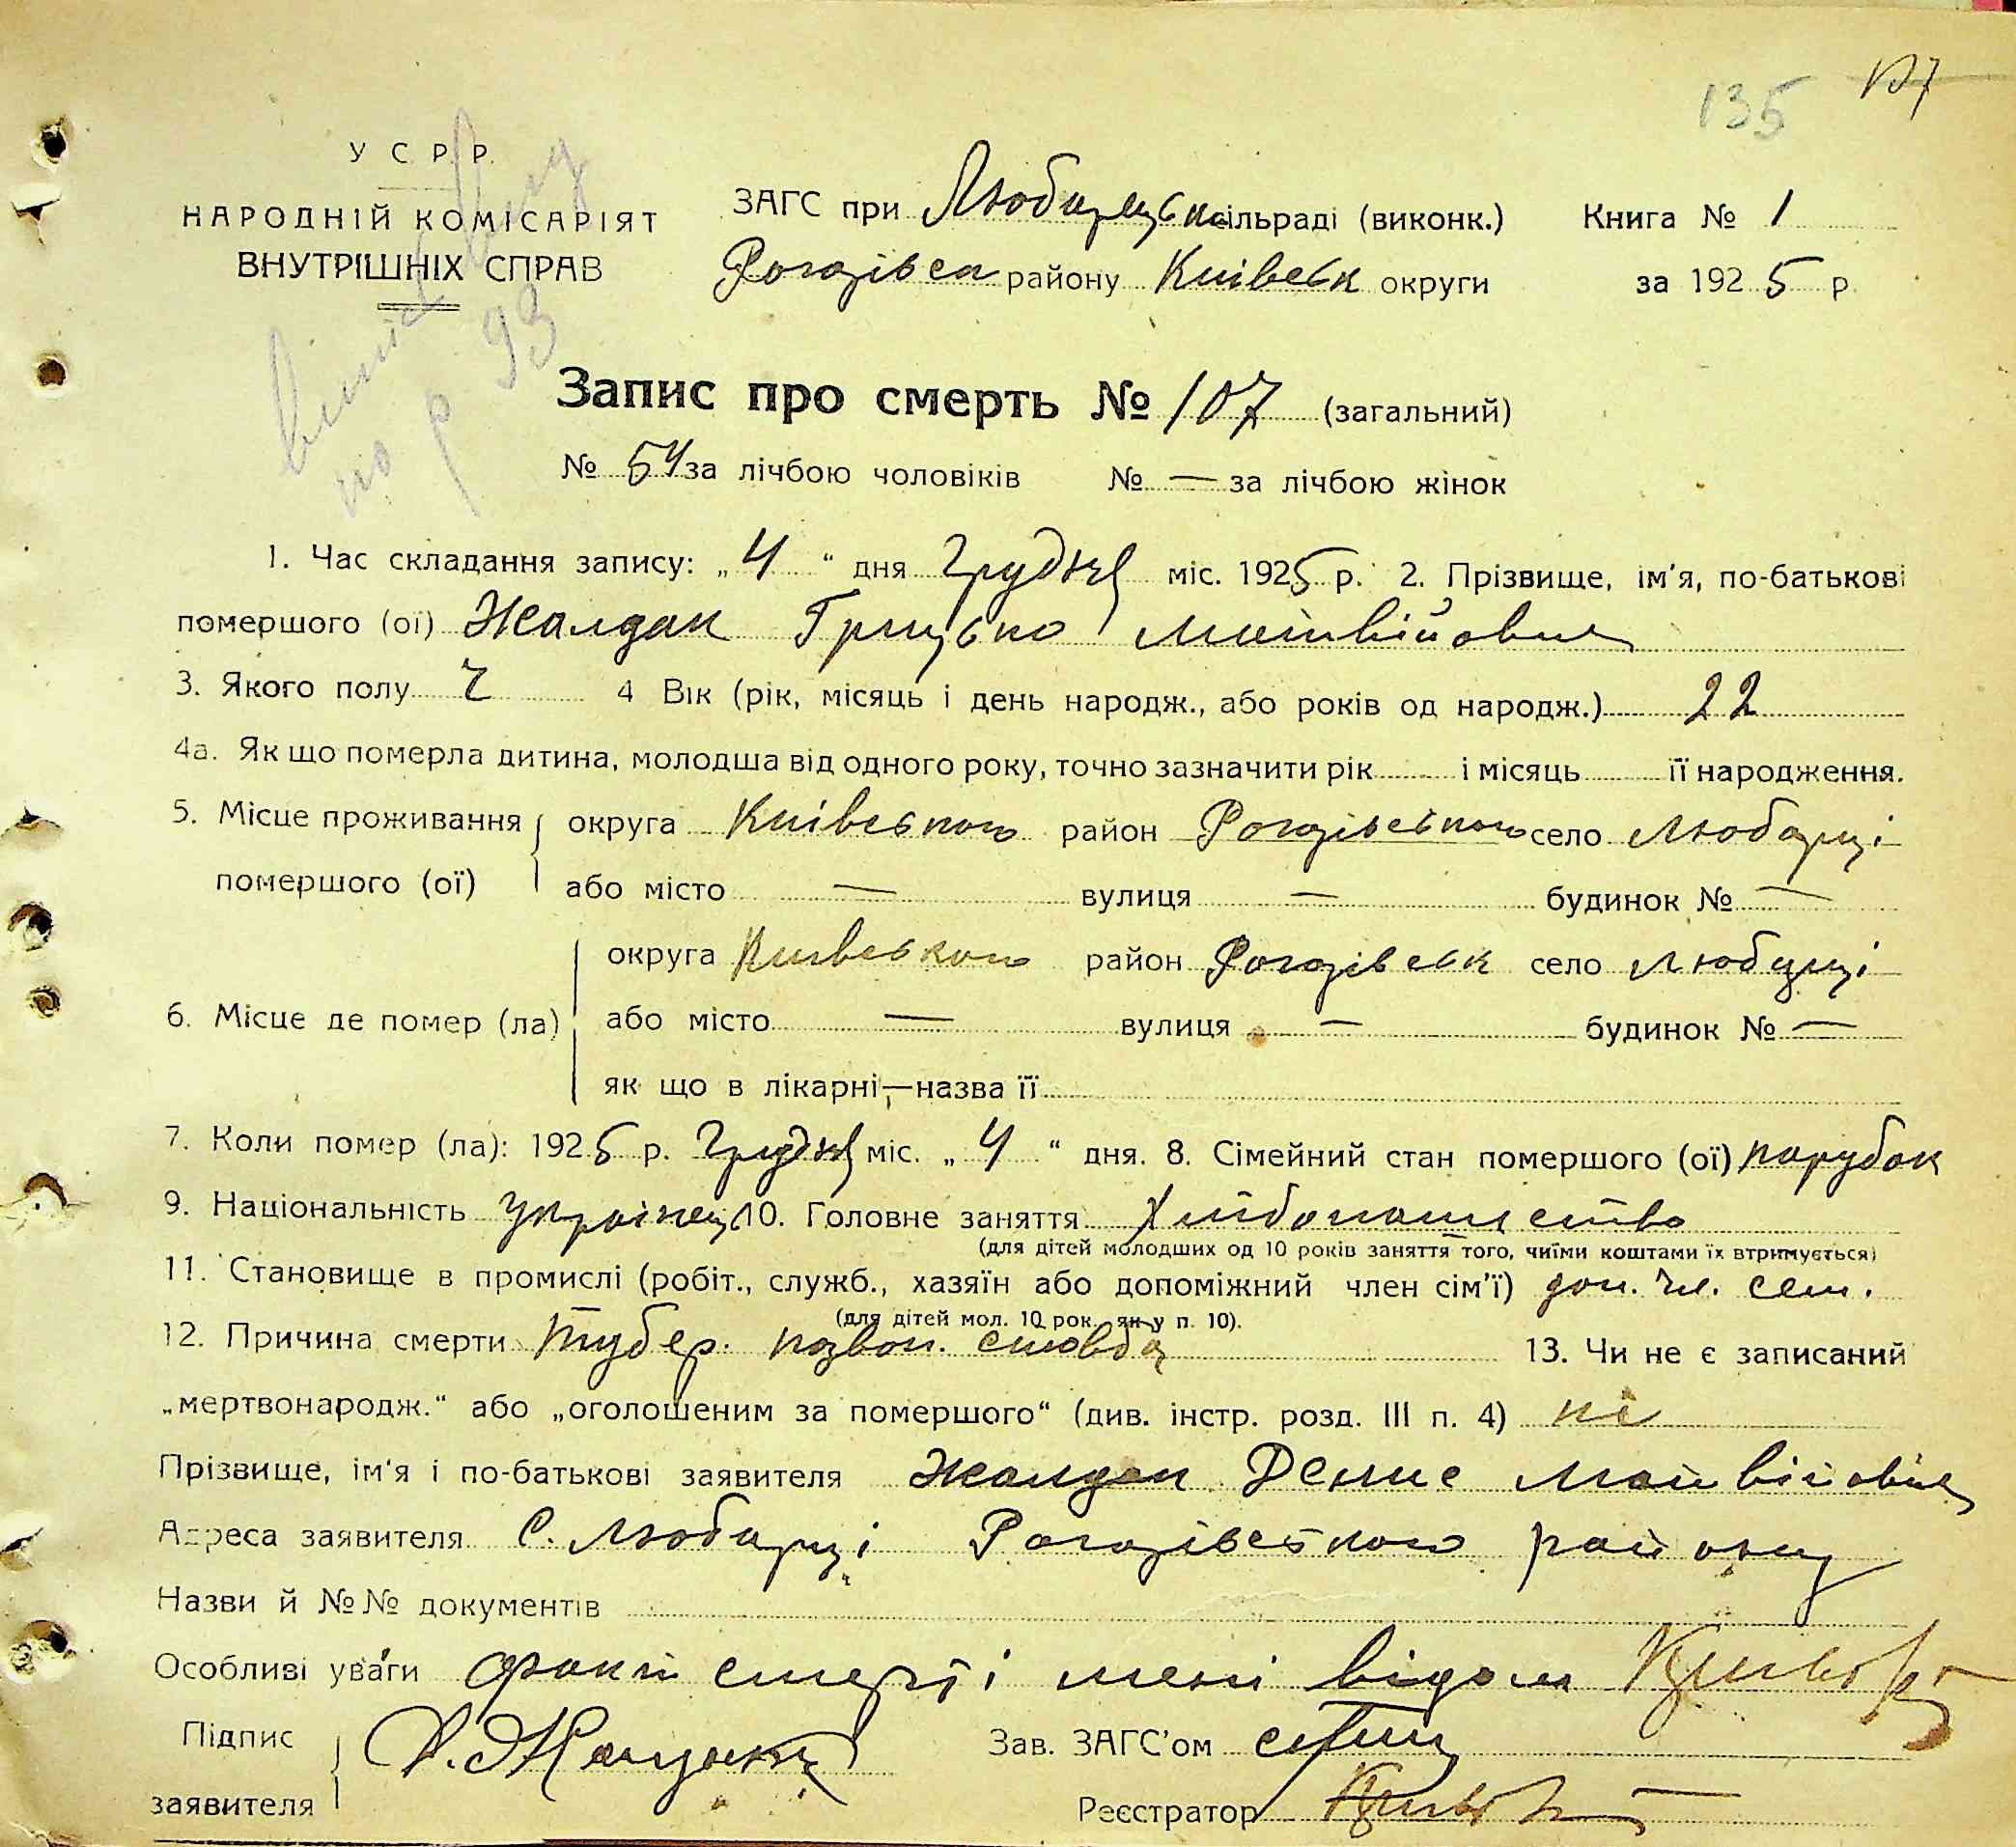 135 107
У С Р Р.
НАРОДНІЙ КОМІСАРІЯТ
ВНУТРІШНІХ СПРАВ
ЗАГС при Любарецьк сільраді (виконк.) Книга № 1
Рогозівськ району Київськ округи за 1925 р
по р 93
Запис про смерть № 107 (загальний)
№ 54 за лічбою чоловіків № — за лічбою жінок
1. Час складання запису: „4“ дня Грудня міс. 1925 р. 2. Прізвище, ім'я, по-батькові
помершого (ої) Жалдак Грицько Матвійович
3. Якого полу ч 4 Вік (рік, місяць і день народж., або років од народж.) 22
4а. Як що померла дитина, молодша від одного року, точно зазначити рік і місяць її народження.
5. Місце проживання помершого (ої) округа Київського район Рогозівського село Любарці
або місто — вулиця — будинок № —
6. Місце де помер (ла) округа Київського район Рогозівськ село Любарці
або місто — вулиця — будинок № —
як що в лікарні,—назва її
7. Коли помер (ла): 1925 р. Грудня міс. „4“ дня. 8. Сімейний стан помершого (ої) парубок
9. Національність Українець 10. Головне заняття Хлібопашество
(для дітей молодших од 10 років заняття того, чиїми коштами їх втримується)
11. Становище в промислі (робіт., служб., хазяїн або допоміжний член сім'ї) доп. чл. сем.
(для дітей мол. 10 рок. як у п. 10).
12. Причина смерти Тубер. позвон. столба 13. Чи не є записаний
„мертвонародж.“ або „оголошеним за помершого“ (див. інстр. розд. III п. 4) ні
Прізвище, ім'я і по-батькові заявителя Жалдак Денис Матвійович
Адреса заявителя С. Любарці Рогозівського району
Назви й №№ документів
Особливі уваги факт смерті мені відом
Підпис заявителя Д. Жалдак Зав. ЗАГС'ом
Реєстратор